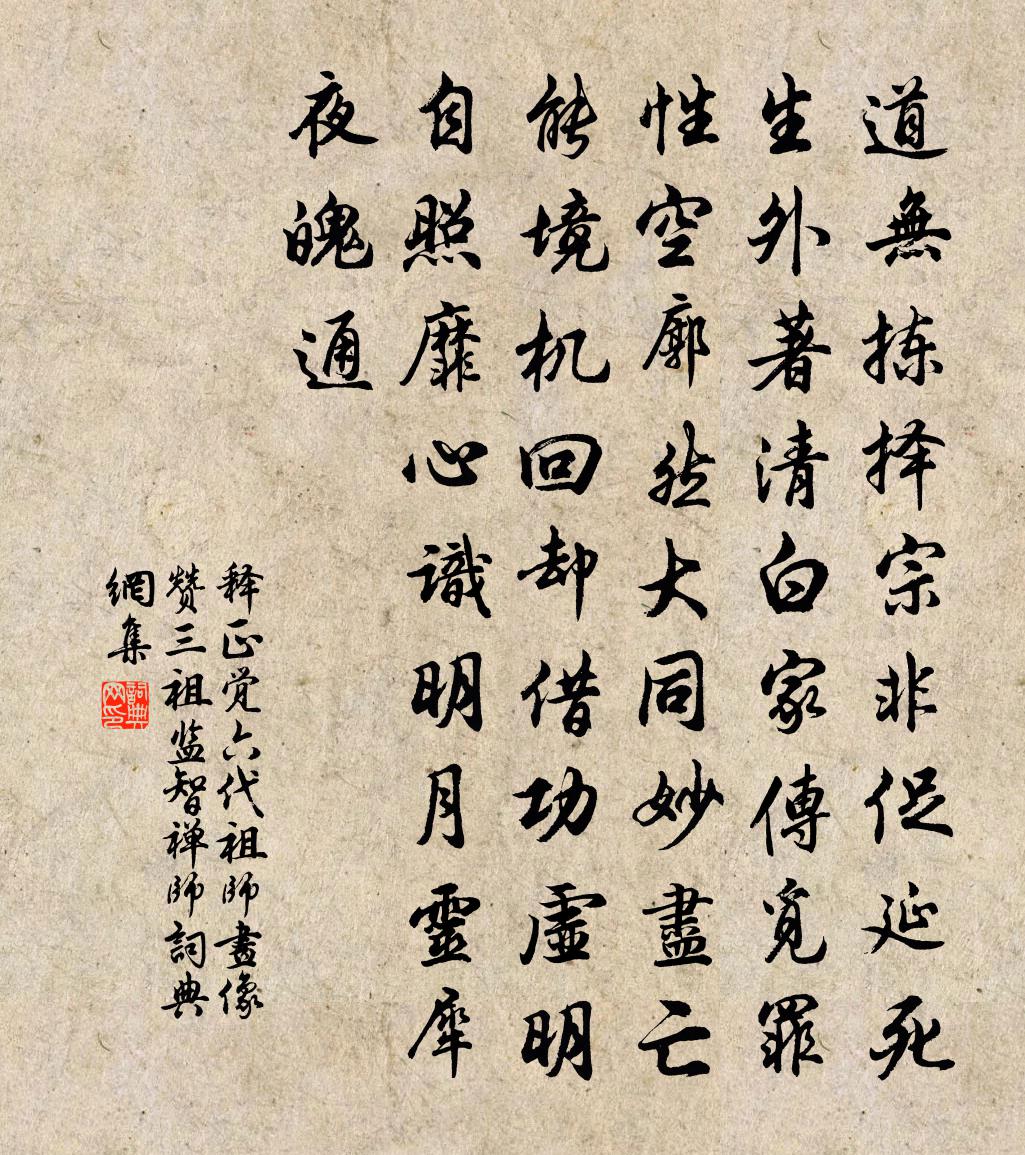 道無拣择宗非促延死
生外著清白家傳覓罪
性空廓然大同妙盡亡
能境机回却借功虚明
自照靡心識明月靈犀
夜魄通
释正觉六代祖師畫像
赞三祖监智禅師詞典
網集
詞典
网印